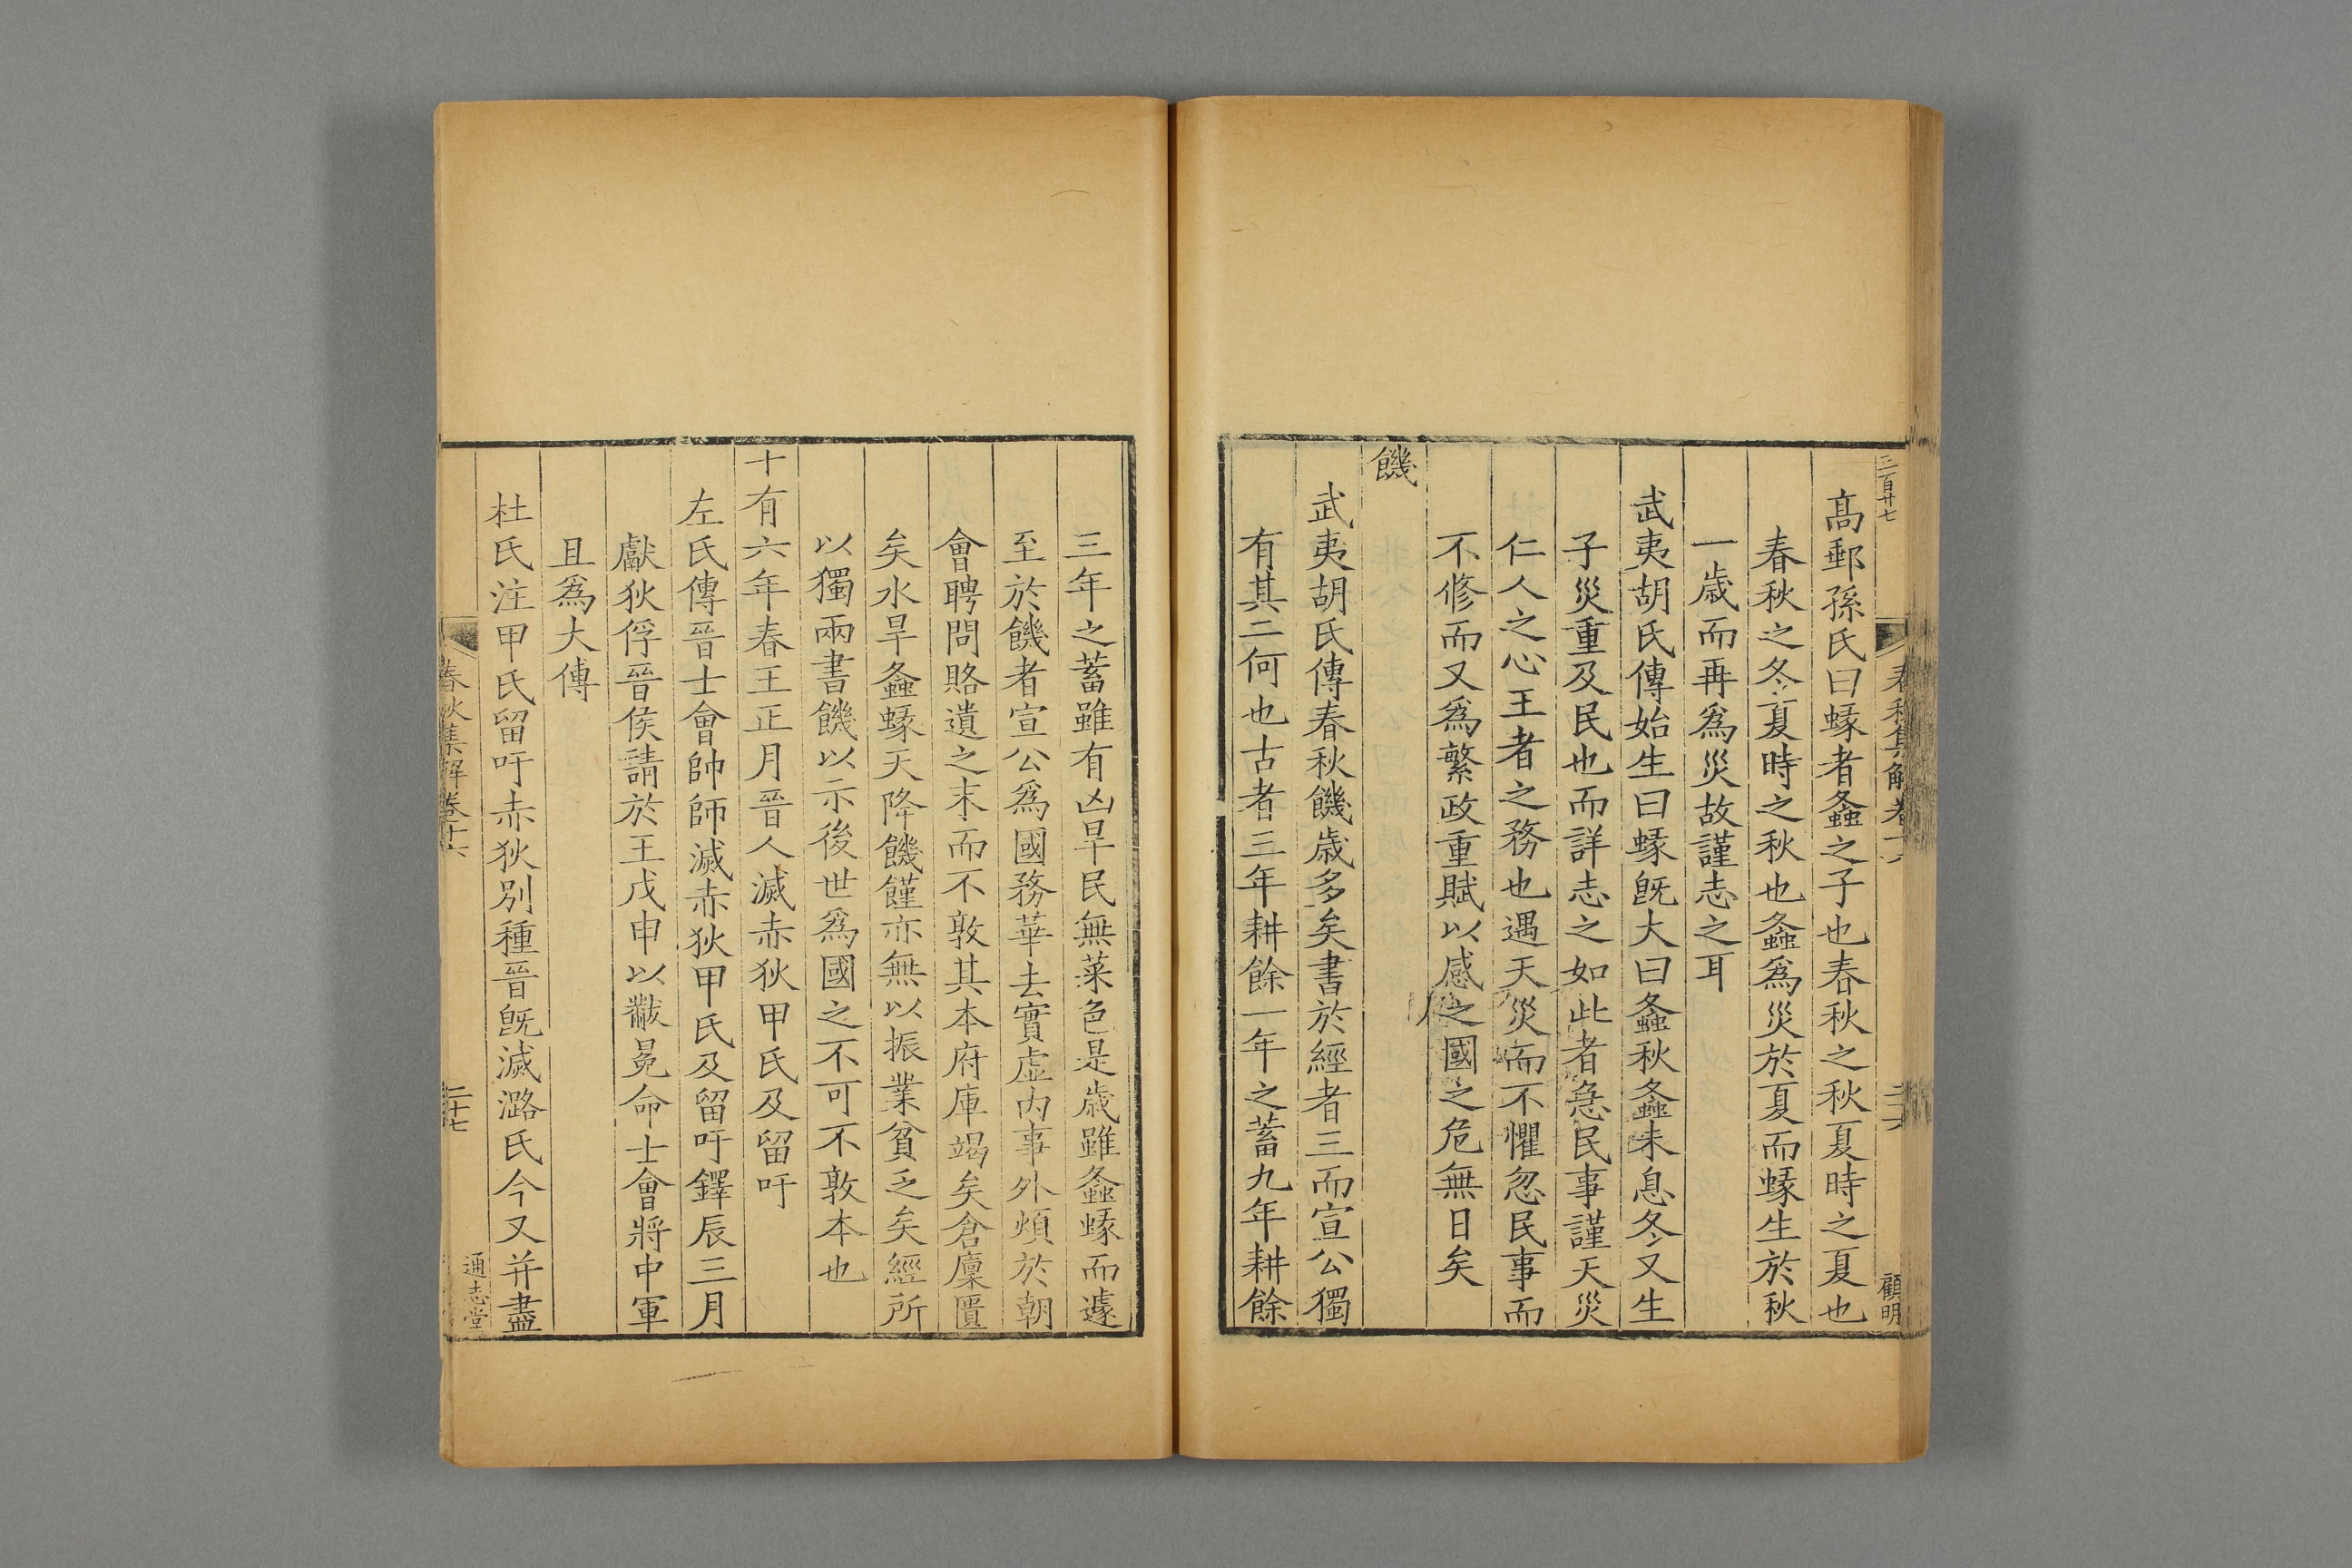 三百廿七
春秋集解卷十六
二十六
顧明
高郵孫氏曰蝝者螽之子也春秋之秋夏時之夏也
春秋之冬夏時之秋也螽爲災於夏而蝝生於秋
一歲而再爲災故謹志之耳
武夷胡氏傳始生曰蝝旣大曰螽秋螽未息冬又生
子災重及民也而詳志之如此者急民事謹天災
仁人之心王者之務也遇天災而不懼忽民事而
不修而又爲繁政重賦以感之國之危無日矣
饑
武夷胡氏傳春秋饑歲多矣書於經者三而宣公獨
有其二何也古者三年耕餘一年之蓄九年耕餘
三年之蓄雖有凶旱民無菜色是歲雖螽蝝而遽
至於饑者宣公爲國務華去實虛內事外煩於朝
會聘問賂遺之末而不敦其本府庫竭矣倉廩匱
矣水旱螽蝝天降饑饉亦無以振業貧乏矣經所
以獨兩書饑以示後世爲國之不可不敦本也
十有六年春王正月晉人滅赤狄甲氏及留吁
左氏傳晉士會帥師滅赤狄甲氏及留吁鐸辰三月
獻狄俘晉侯請於王戊申以黻冕命士會將中軍
且爲大傅
杜氏注甲氏留吁赤狄別種晉旣滅潞氏今又并盡
春秋集解卷十六
二十七
通志堂